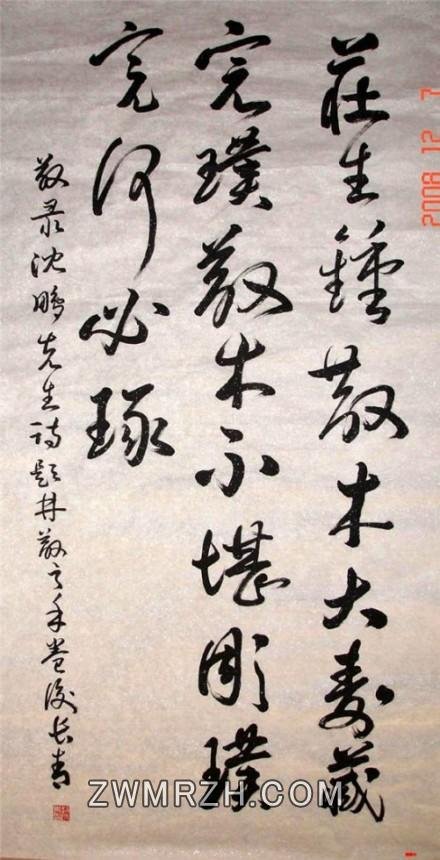 莊生鍾散木大壽藏
完璞散木不堪彫璞
完何必琢
敬录沈鹏先生诗题林散之手卷後长青
2008 12 7
ZWMRZH.COM